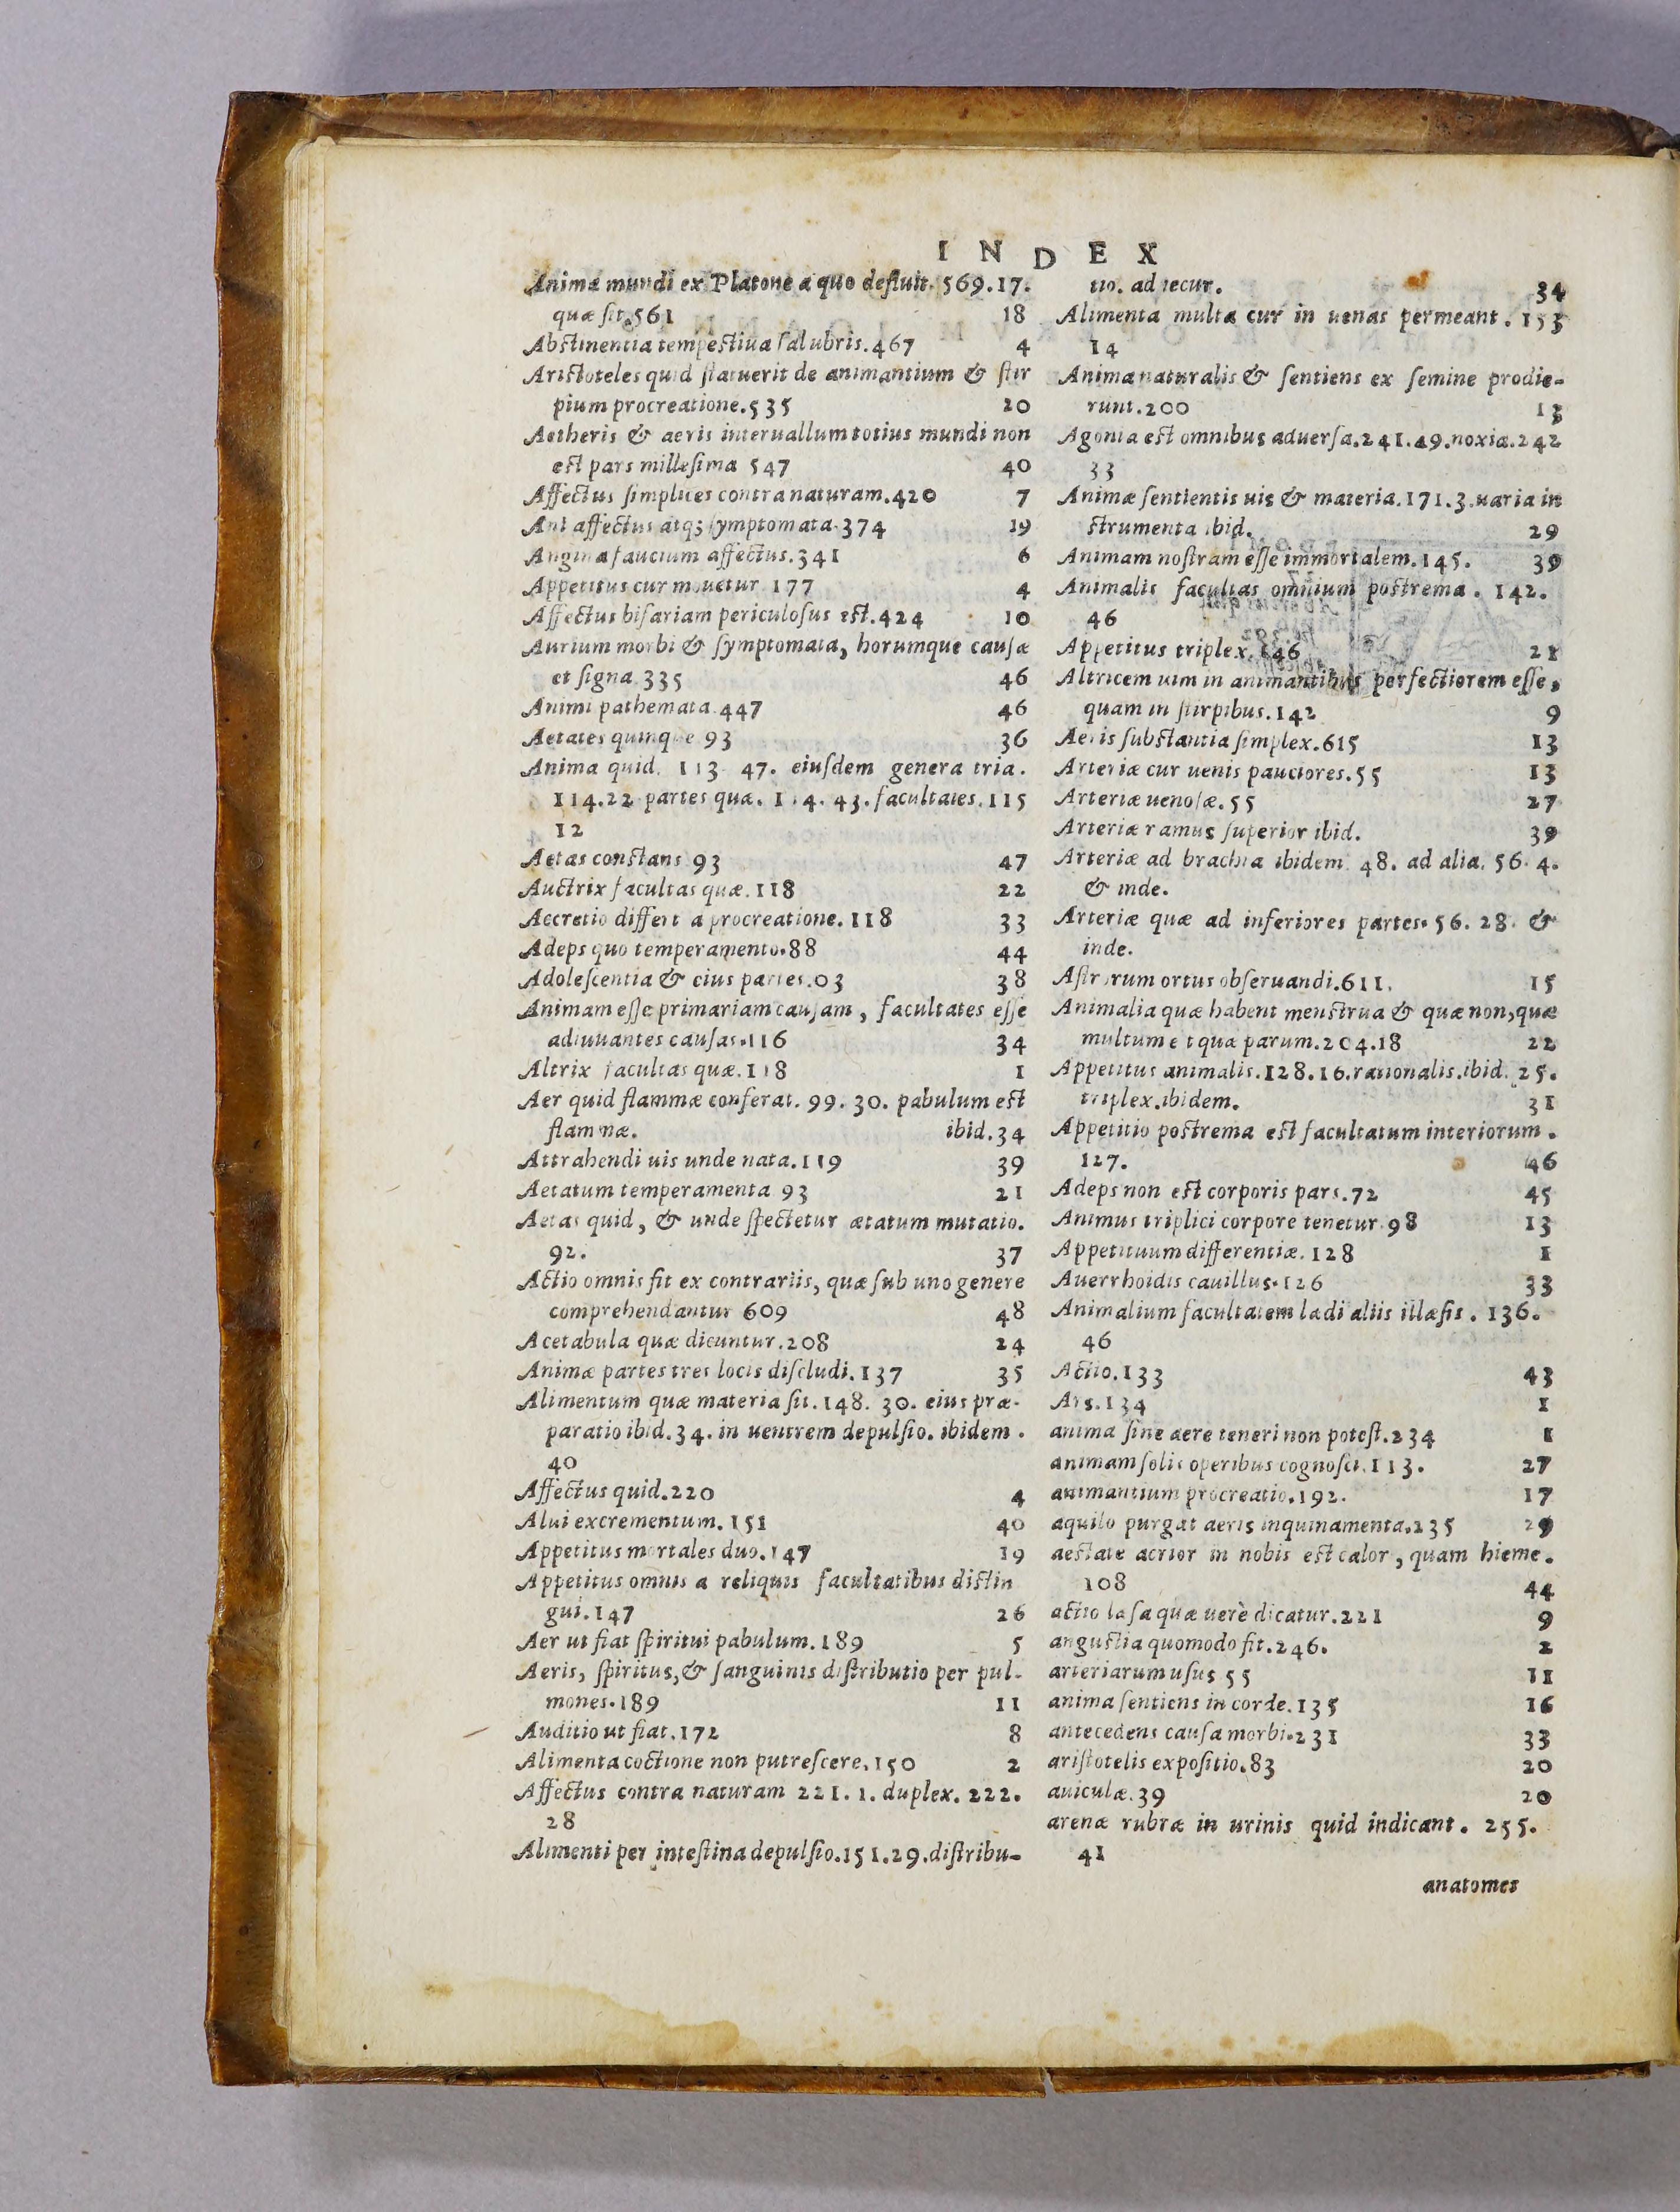 INDEX
Animæ mundi ex Platone a quo defluit. 569.17.
quæ ſit.561 18
Abſtinentia tempeſtiua ſalubris.467 4
Ariſtoteles quid ſtatuerit de animantium & ſtir
pium procreatione.535 20
Aetheris & aeris interuallum totius mundi non
eſt pars milleſima 547 40
Affectus ſimplices contra naturam.420 7
Ani affectus atqꝫ ſymptomata.374 19
Angina faucium affectus.341 6
Appetitus cur mouetur 177 4
Affectus bifariam periculoſus eſt.424 10
Aurium morbi & ſymptomata, horumque cauſæ
et ſigna.335 46
Animi pathemata.447 46
Aetates quinque 93 36
Anima quid. 113. 47. eiuſdem genera tria.
114.22 partes quæ. 114. 43. facultates.115
12
Aetas conſtans 93 47
Auctrix facultas quæ.118 22
Accretio differt a procreatione.118 33
Adeps quo temperamento.88 44
Adoleſcentia & eius partes.03 38
Animam eſſe primariam cauſam, facultates eſſe
adiuuantes cauſas.116 34
Altrix facultas quæ.118 1
Aer quid flammæ conferat. 99. 30. pabulum eſt
flammæ. ibid.34
Attrahendi uis unde nata.119 39
Aetatum temperamenta 93 21
Aetas quid, & unde ſpectetur ætatum mutatio.
92. 37
Actio omnis fit ex contrariis, quæ ſub uno genere
comprehendantur 609 48
Acetabula quæ dicuntur.208 24
Animæ partes tres locis diſcludi.137 35
Alimentum quæ materia ſit.148. 30. eius præ-
paratio ibid.34. in uentrem depulſio. ibidem.
40
Affectus quid.220 4
Alui excrementum.151 40
Appetitus mortales duo.147 19
Appetitus omnis a reliquis facultatibus diſtin
gui.147 26
Aer ut fiat ſpiritui pabulum.189 5
Aeris, ſpiritus,& ſanguinis diſtributio per pul-
mones.189 11
Auditio ut fiat.172 8
Alimenta coctione non putreſcere.150 2
Affectus contra naturam 221. 1. duplex. 222.
28
Alimenti per inteſtina depulſio.151.29.diſtribu-
tio. ad iecur. 34
Alimenta multa cur in uenas permeant. 153
14
Anima naturalis & ſentiens ex ſemine prodie-
runt.200 13
Agonia eſt omnibus aduerſa.241.49.noxia.242
33
Animæ ſentientis uis & materia.171.3.uaria in
ſtrumenta ibid. 29
Animam noſtram eſſe immortalem.145. 39
Animalis facultas omnium poſtrema. 142.
46
Appetitus triplex.146 21
Altricem uim in animantibus perfectiorem eſſe,
quam in ſtirpibus.142 9
Aeris ſubſtantia ſimplex.615 13
Arteriæ cur uenis pauciores.55 13
Arteriæ uenoſæ.55 27
Arteriæ ramus ſuperior ibid. 39
Arteriæ ad brachia ibidem. 48. ad alia. 56. 4.
& inde.
Arteriæ quæ ad inferiores partes. 56. 28. &
inde.
Aſtrorum ortus obſeruandi.611. 15
Animalia quæ habent menſtrua & quæ non,quæ
multum et quæ parum.204.18 22
Appetitus animalis.128.16.rationalis.ibid. 25.
triplex.ibidem. 31
Appetitio poſtrema eſt facultatum interiorum.
127. 46
Adeps non eſt corporis pars.72 45
Animus triplici corpore tenetur.98 13
Appetituum differentiæ.128 1
Auerrhoidis cauillus.126 33
Animalium facultatem lædi aliis illæſis. 136.
46
Actio.133 43
Ars.134 1
anima ſine aere teneri non poteſt.234 1
animam ſolis operibus cognoſci.113. 27
animantium procreatio.192. 17
aquilo purgat aeris inquinamenta.235 29
aeſtate acrior in nobis eſt calor, quam hieme.
108 44
actio læſa quæ uerè dicatur.221 9
anguſtia quomodo fit.246. 2
arteriarum uſus 55 11
anima ſentiens in corde.135 16
antecedens cauſa morbi.231 33
ariſtotelis expoſitio.83 20
auiculæ.39 20
arenæ rubræ in urinis quid indicant. 255.
41
anatomes